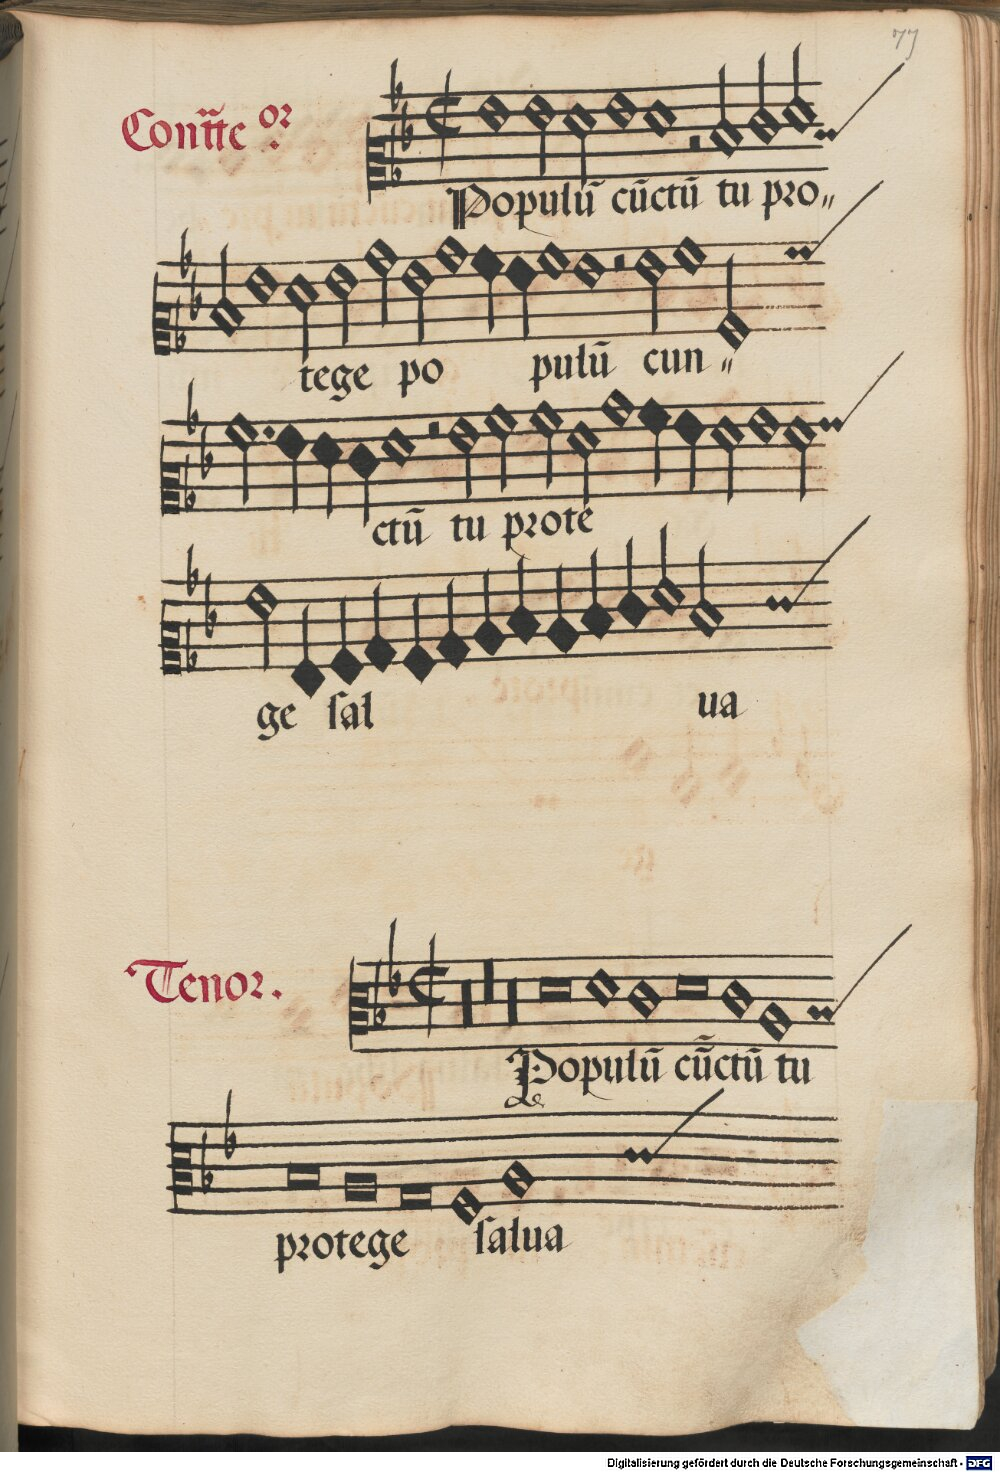 77
Contr̄te or.
Populū cūctū tu pro〃
tege po pulū cun〃
ctū tu prote
ge sal ua
Tenor.
Populū cūctū tu
protege salua
Digitalisierung gefördert durch die Deutsche Forschungsgemeinschaft - DFG